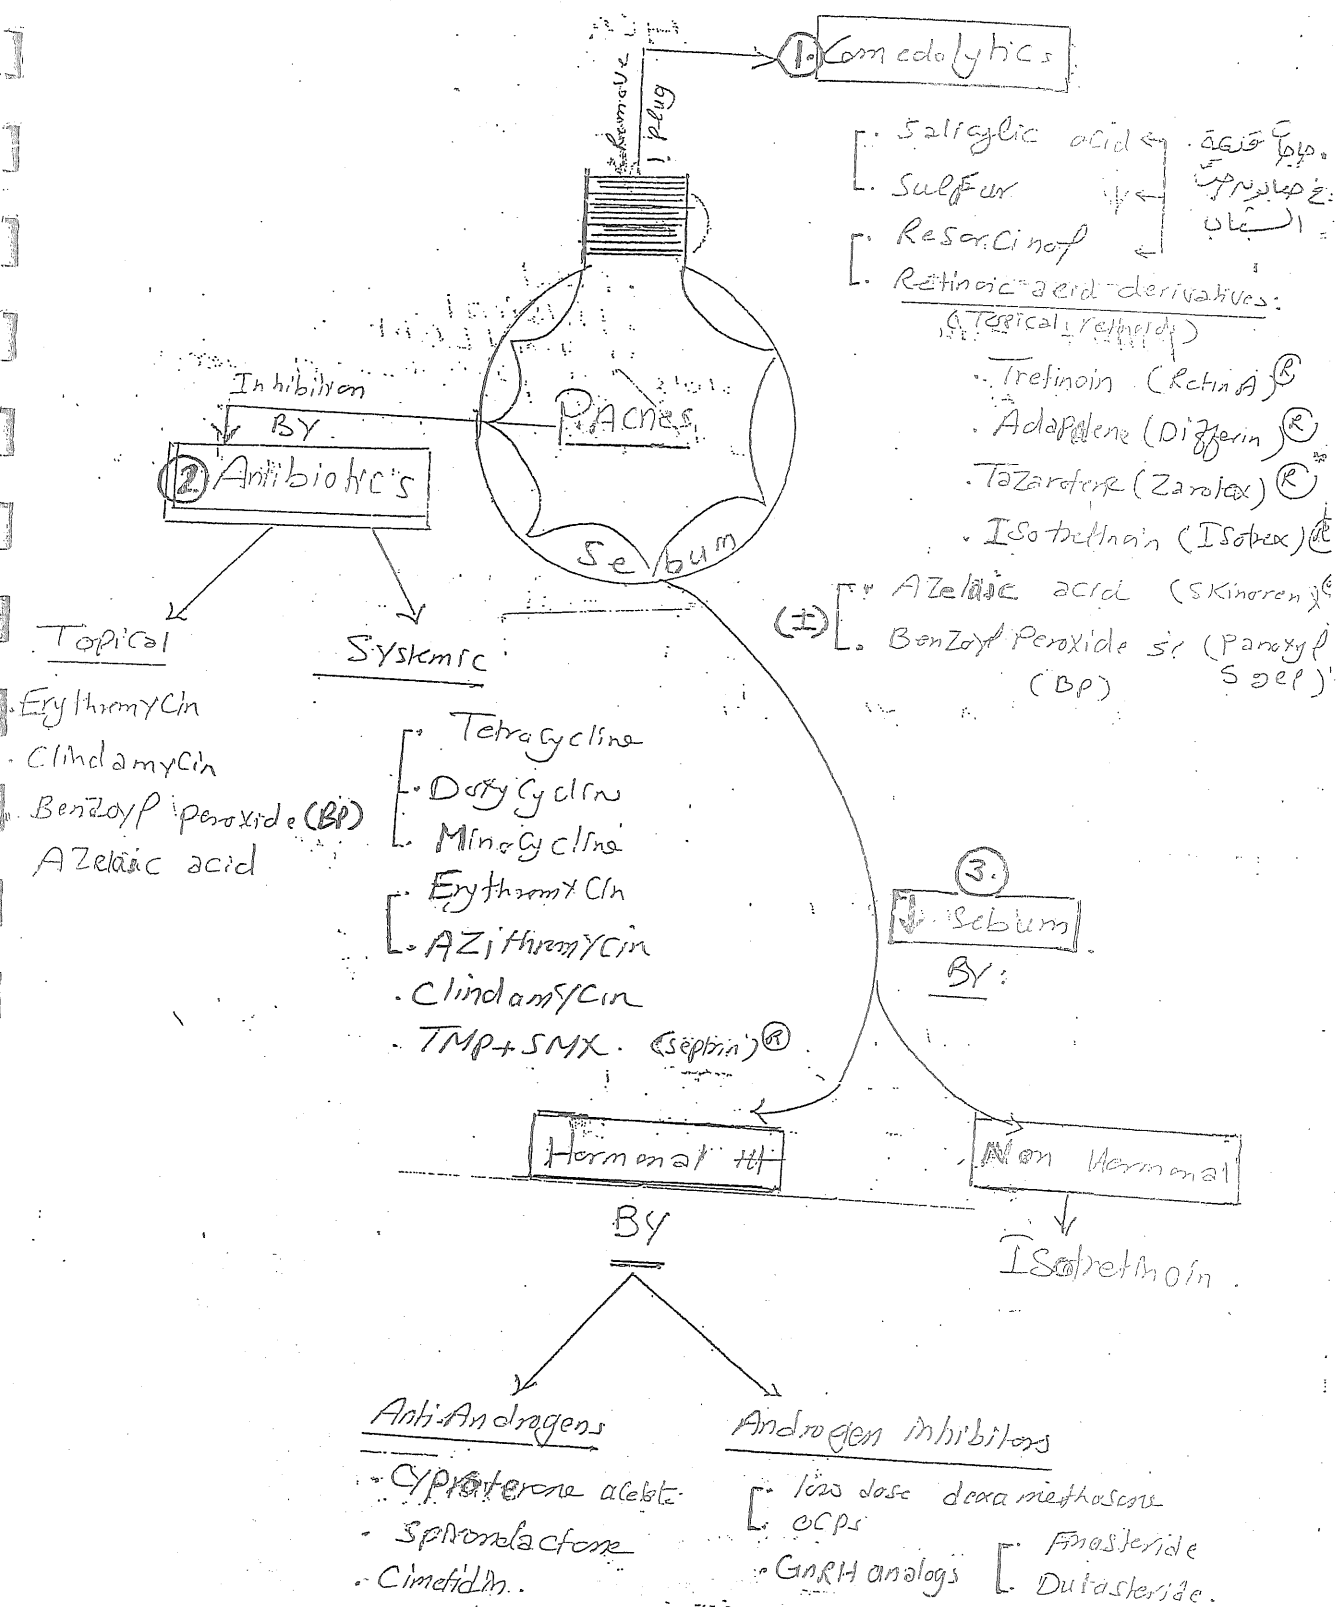 1. Comedolytics
Remove
! plug
. Salicylic acid
. Sulfur
. Resorcinol
. Retinoic acid derivatives:
(Topical retinoids)
. Tretinoin (Retin A) ®
. Adapalene (Differin) ®
. Tazarotene (Zarotex) ®
. Isotretinoin (Isotrex) ®
(I)
. Azelaic acid (Skinoren)
. Benzoyl Peroxide (Panoxyl
(BP)
الشباب
P. Acnes
Sebum
Inhibition
BY
2 Antibiotic's
Topical
. Erythromycin
. Clindamycin
. Benzoyl peroxide (BP)
Azelaic acid
Systemic
. Tetracycline
. Doxycyclin
. Minocycline
. Erythromycin
. Azithromycin
. Clindamycin
. TMP+SMX. (septrin) ®
3.
↓ Sebum
BY:
Hormonal ttt
Non Hormonal
Isotretinoin.
BY
Anti-Androgens
. Cyproterone acetate
. Spironolactone
. Cimetidin.
Androgen inhibitors
. low dose dexamethasone
. OCPs
. GnRH analogs
. Finasteride
. Dutasteride.